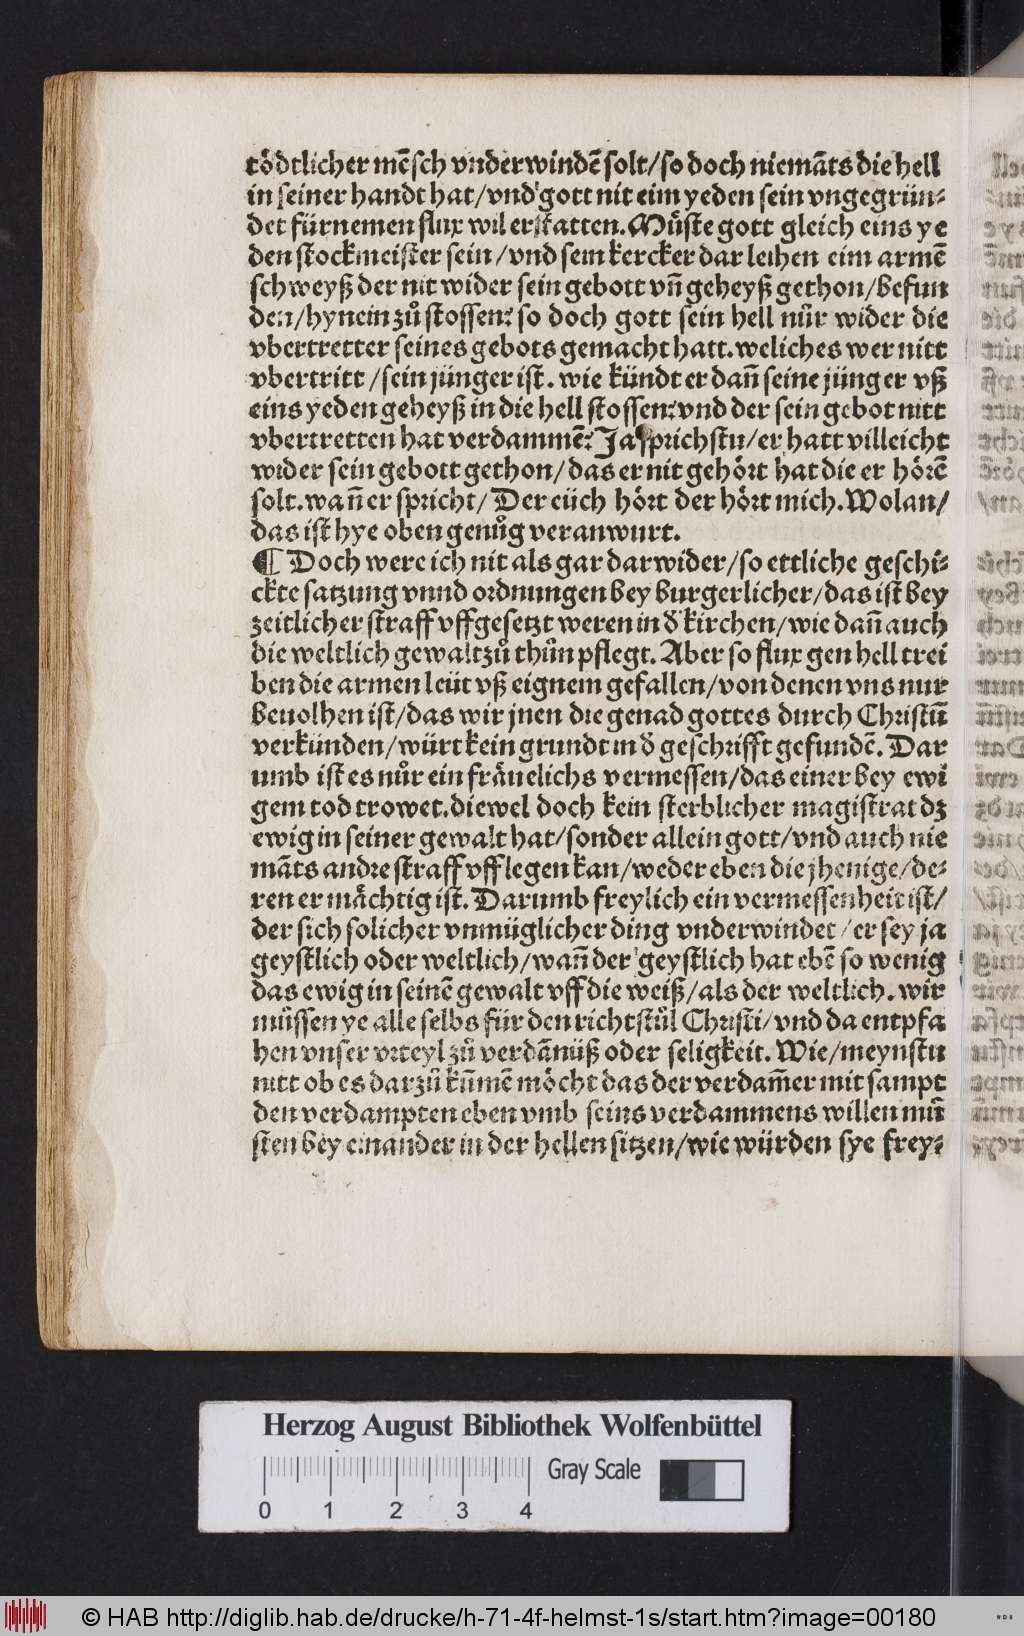 tödtlicher mēsch vnderwindē solt/so doch niemāts die hell
in seiner handt hat/vnd gott nit eim yeden sein vngegrün⸗
det fürnemen flux wil erstatten. Müste gott gleich eins ye
den stockmeister sein/vnd sein kercker dar leihen eim armē
schweyß der nit wider sein gebott vn̄ geheyß gethon/befun
den/hynein zů stossen? so doch gott sein hell nůr wider die
vbertretter seines gebots gemacht hatt. weliches wer nitt
vbertritt/sein jünger ist. wie kündt er dan̄ seine jünger vß
eins yeden geheyß in die hell stossen? vnd der sein gebot nitt
vbertretten hat verdammē? Ja sprichstu/er hatt villeicht
wider sein gebott gethon/das er nit gehört hat die er hörē
solt. wan̄ er spricht/Der eüch hört der hört mich. Wolan/
das ist hye oben genůg veranwurt.
¶ Doch were ich nit als gar darwider/so ettliche geschi⸗
ckte satzung vnnd ordnungen bey burgerlicher/das ist bey
zeitlicher straff vffgesetzt weren in d' kirchen/wie dan̄ auch
die weltlich gewalt zů thůn pflegt. Aber so flux gen hell trei
ben die armen leüt vß eignem gefallen/von denen vns nur
beuolhen ist/das wir jnen die genad gottes durch Christū
verkünden/würt kein grundt in d' geschrifft gefundē. Dar
umb ist es nůr ein fräuelichs vermessen/das einer bey ewi
gem tod trowet. diewel doch kein sterblicher magistrat dz
ewig in seiner gewalt hat/sonder allein gott/vnd auch nie
māts andre straff vfflegen kan/weder eben die jhenige/de⸗
ren er mächtig ist. Darumb freylich ein vermessenheit ist/
der sich solicher vnmüglicher ding vnderwindet/er sey ja
geystlich oder weltlich/wan̄ der geystlich hat ebē so wenig
das ewig in seinē gewalt vff die weiß/als der weltlich. wir
müssen ye alle selbs für den richtstůl Christi/vnd da entpfa
hen vnser vrteyl zů verdānüß oder seligkeit. Wie/meynstu
nitt ob es darzů kūmē möcht das der verdam̄er mit sampt
den verdampten eben vmb seins verdammens willen mü
sten bey einander in der hellen sitzen/wie würden sye frey⸗
Herzog August Bibliothek Wolfenbüttel
Gray Scale
0 1 2 3 4
© HAB http://diglib.hab.de/drucke/h-71-4f-helmst-1s/start.htm?image=00180